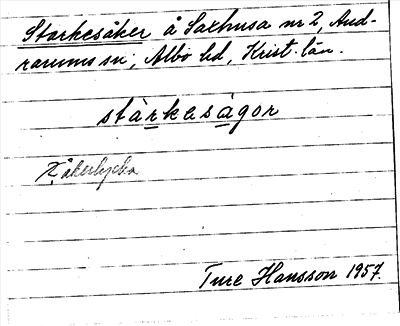 Starkesåker å Saxhusa nr 2, And-
rarums sn, Albo hd, Krist. län.
stàrkeságor
åkerlycka
Ture Hansson 1957.